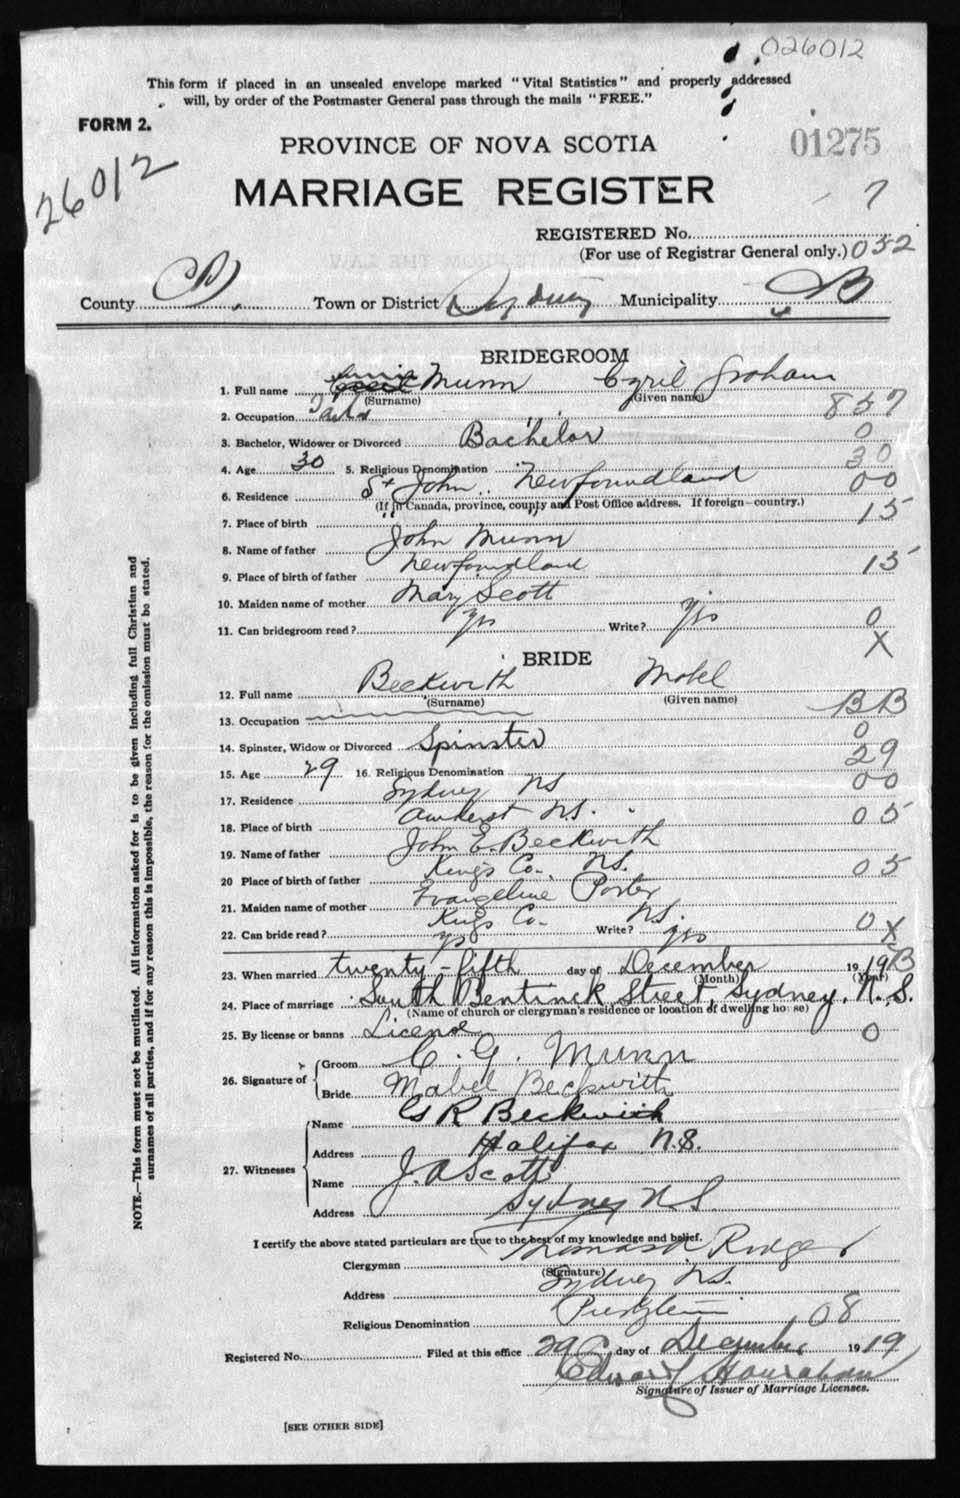 026012
This form if placed in an unsealed envelope marked "Vital Statistics" and properly addressed
will, by order of the Postmaster General pass through the mails "FREE."
FORM 2.
26012
PROVINCE OF NOVA SCOTIA
01275
MARRIAGE REGISTER
7
REGISTERED No.
(For use of Registrar General only.) 052
County C.B. Town or District Sydney Municipality C.B
BRIDEGROOM
1. Full name Munn Cyril Graham
(Surname) (Given name)
2. Occupation 857
3. Bachelor, Widower or Divorced Bachelor 0
4. Age 30 5. Religious Denomination 30
6. Residence St John Newfoundland 00
(If in Canada, province, county and Post Office address. If foreign—country.)
7. Place of birth " " 15
8. Name of father John Munn
9. Place of birth of father Newfoundland 15
10. Maiden name of mother Mary Scott
11. Can bridegroom read? Yes Write? Yes 0
X
BRIDE
12. Full name Beckwith Mabel
(Surname) (Given name)
13. Occupation BB
14. Spinster, Widow or Divorced Spinster 0
15. Age 29 16. Religious Denomination 29
17. Residence Sydney NS 00
18. Place of birth Amherst N.S. 05
19. Name of father John E. Beckwith
20 Place of birth of father Kings Co., N.S. 05
21. Maiden name of mother Evangeline Porter
Kings Co. N.S.
22. Can bride read? Yes Write? Yes 0 X
23. When married twenty-fifth day of December 1919 B
(Month) (Year)
24. Place of marriage South Bentinck Street, Sydney, N.S.
(Name of church or clergyman's residence or location of dwelling house)
25. By license or banns License 0
26. Signature of Groom C. G. Munn
Bride Mabel Beckwith
27. Witnesses Name G R Beckwith
Address Halifax N.S.
Name J. A Scott
Address Sydney N S.
I certify the above stated particulars are true to the best of my knowledge and belief.
Clergyman
(Signature)
Address Sydney N.S.
Religious Denomination 08
Registered No. Filed at this office 29 day of December 1919
Edward Hanrahan
Signature of Issuer of Marriage Licenses.
[SEE OTHER SIDE]
NOTE.—This form must not be mutilated. All information asked for is to be given including full Christian and
surnames of all parties, and if for any reason this is impossible, the reason for the omission must be stated.